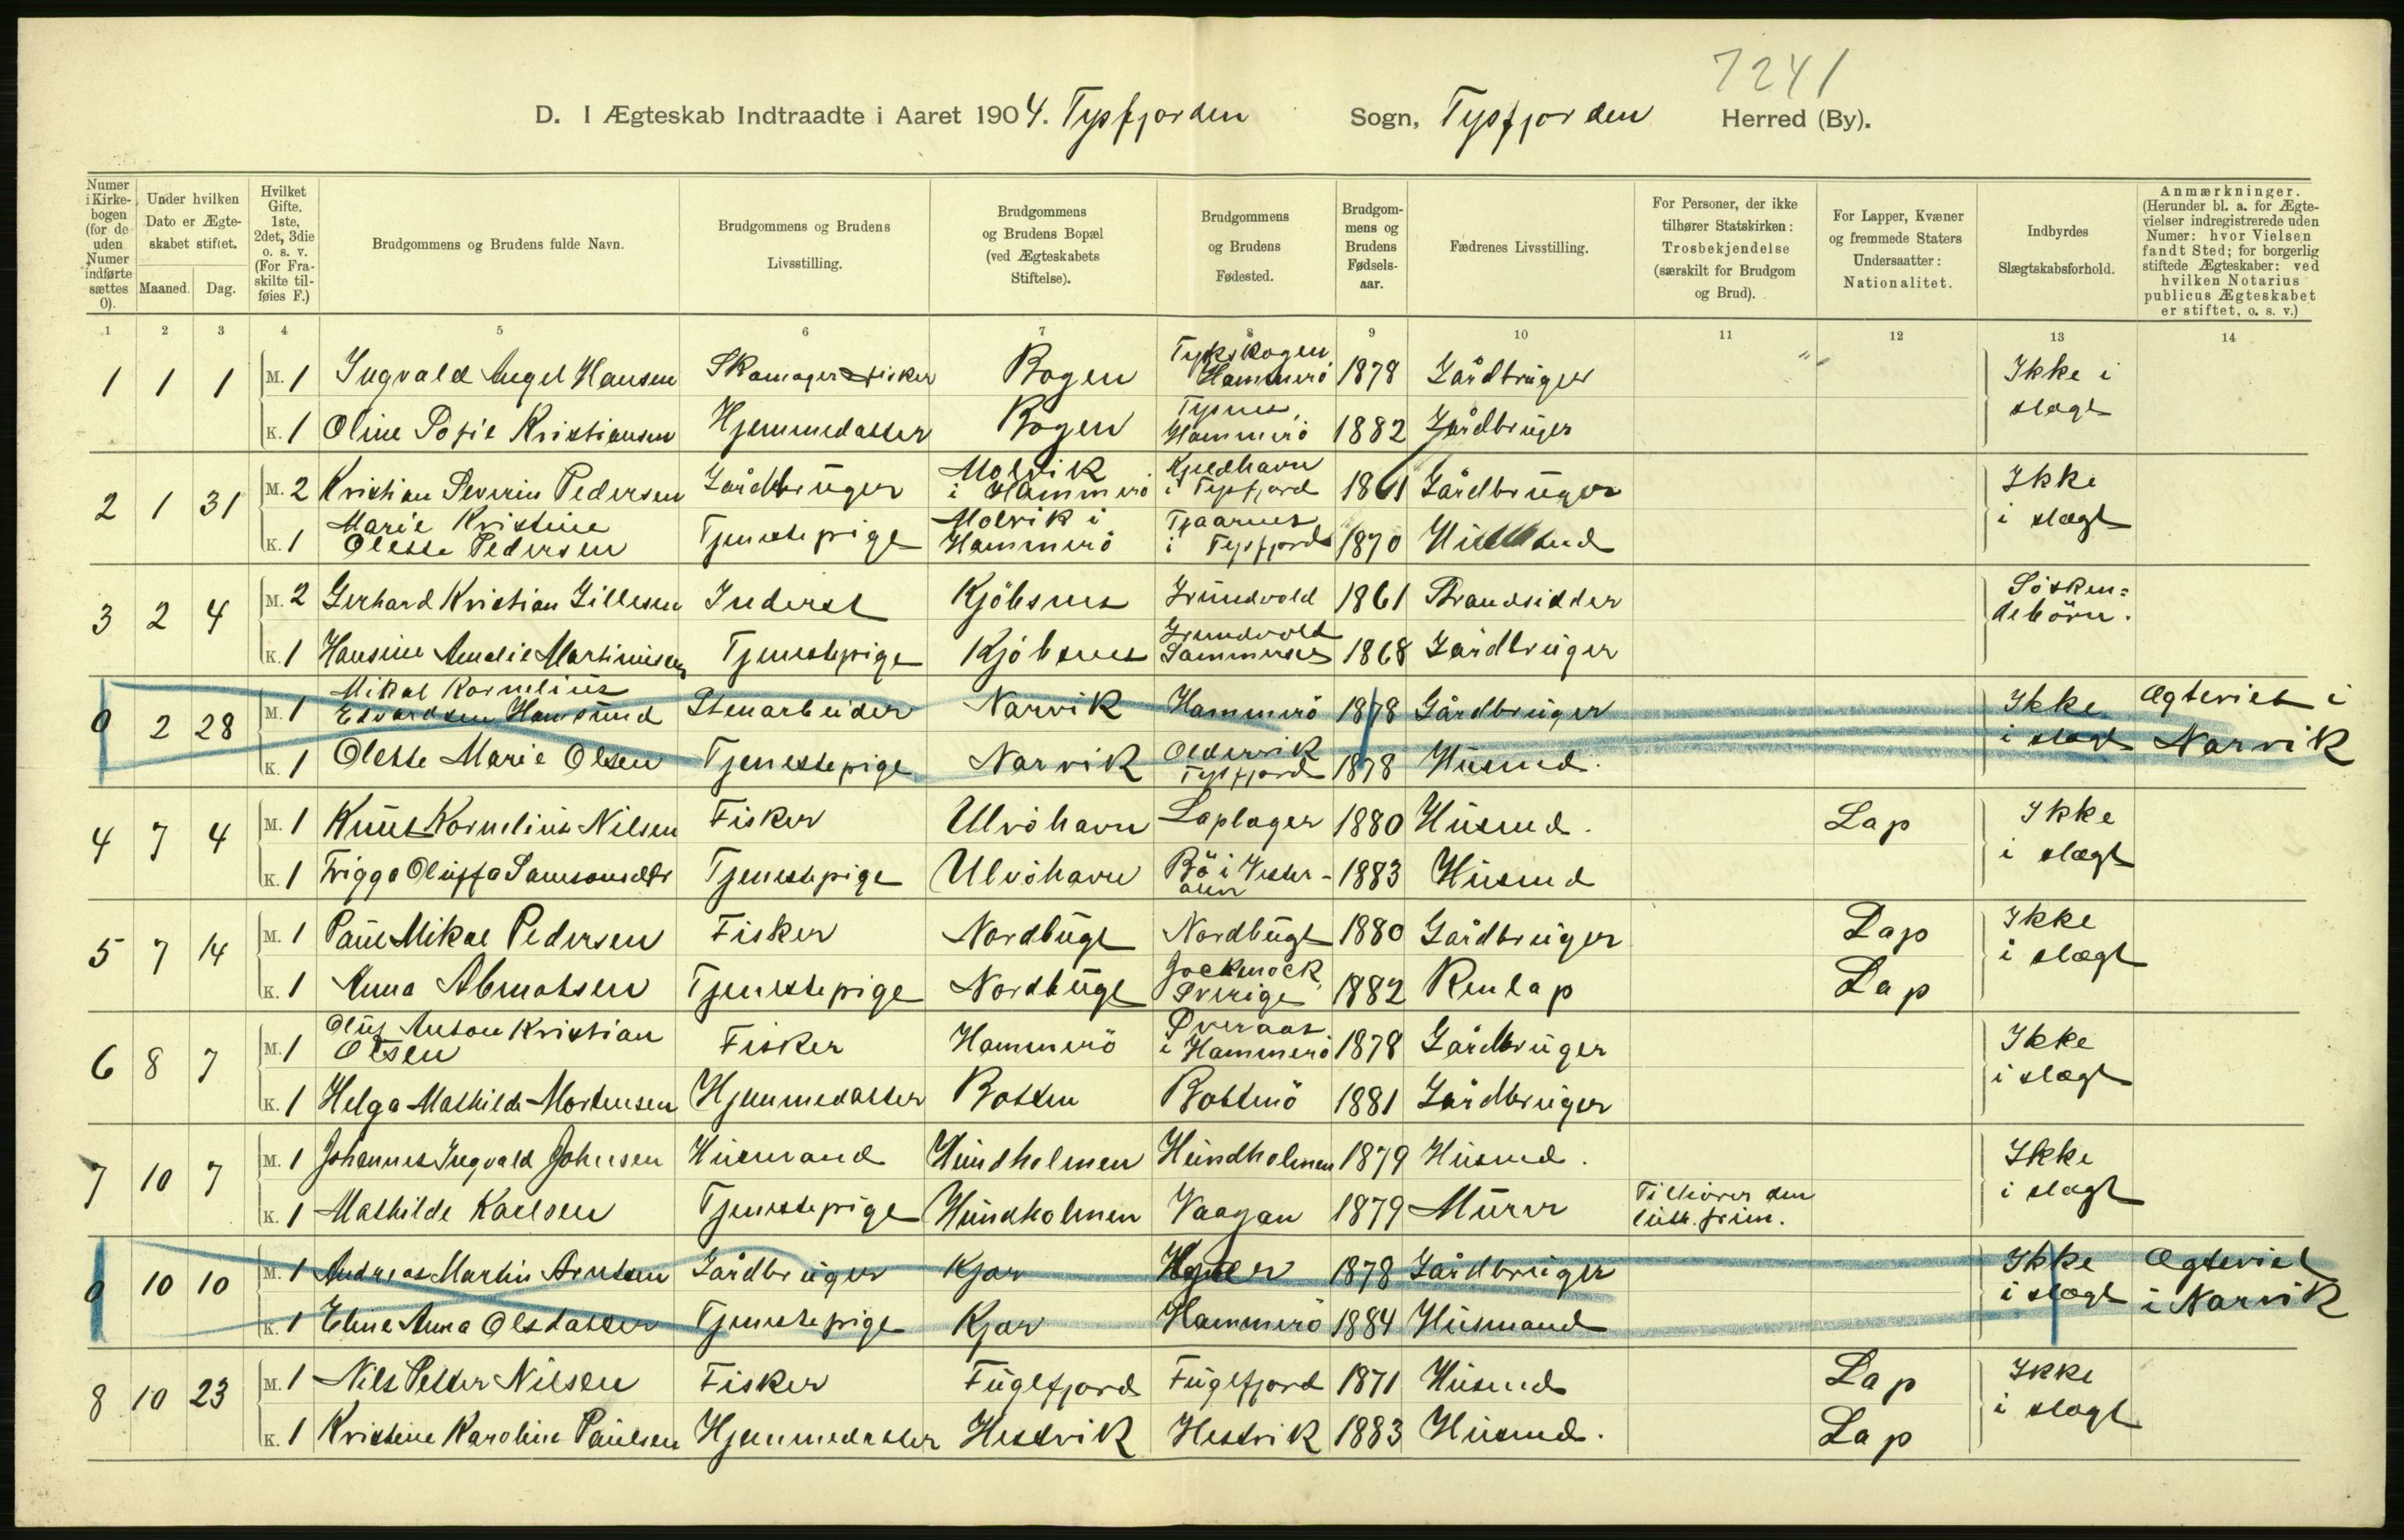 7241
D. I Ægteskab Indtraadte i Aaret 1904. Tysfjorden Sogn, Tysfjorden Herred (By).
Numer i Kirkebogen (for de uden Numer indførte sættes 0).
Under hvilken Dato er Ægteskabet stiftet.
Maaned. Dag.
Hvilket Gifte. 1ste, 2det, 3die o. s. v. (For Fraskilte tilføies F.)
Brudgommens og Brudens fulde Navn.
Brudgommens og Brudens Livsstilling.
Brudgommens og Brudens Bopæl (ved Ægteskabets Stiftelse).
Brudgommens og Brudens Fødested.
Brudgommens og Brudens Fødselsaar.
Fædrenes Livsstilling.
For Personer, der ikke tilhører Statskirken: Trosbekjendelse (særskilt for Brudgom og Brud).
For Lapper, Kvæner og fremmede Staters Undersaatter: Nationalitet.
Indbyrdes Slægtskabsforhold.
Anmærkninger. (Herunder bl. a. for Ægtevielser indregistrerede uden Numer: hvor Vielsen fandt Sted; for borgerlig stiftede Ægteskaber: ved hvilken Notarius publicus Ægteskabet er stiftet, o. s. v.)
1 2 3 4 5 6 7 8 9 10 11 12 13 14
1 1 1 M. 1 Ingvald Angel Hansen Skomager Fisker Bogen Hammerö 1878 Gårdbruger " Ikke i slægt
K. 1 Oline Sofie Kristiansen Hjemmedatter Bogen Tysnes, Hammerö 1882 Gårdbruger
2 1 31 M. 2 Kristian Severin Pedersen Gårdbruger Molvik i Hammerö Kjeldhavn i Tysfjord 1861 Gårdbruger Ikke i slægt
K. 1 Marie Kristine Olette Pedersen Tjenestepige Molvik i Hammerö Tjaarnes i Tysfjord 1870 Husmand
3 2 4 M. 2 Gerhard Kristian Gillesen Inderst Kjöbsnes Grundvold 1861 Strandsidder Söskendebörn.
K. 1 Hansine Amalie Martinusen Tjenestepige Kjöbsnes Grundvold 1868 Gårdbruger
0 2 28 M. 1 Mikal Kornelius Edvardsen Hamsund Stenarbeider Narvik Hammerö 1878 Gårdbruger Ikke i slægt Ægteviet i Narvik
K. 1 Olette Marie Olsen Tjenestepige Narvik Oldervik Tysfjord 1878 Husmd.
4 7 4 M. 1 Knut Kornelius Nilsen Fisker Ulvöhavn Laplager 1880 Husmd. Lap Ikke i slægt
K. 1 Frigga Oluffa Samsonsdtr Tjenestepige Ulvöhavn Bö i Vesteraalen 1883 Husmd
5 7 14 M. 1 Paul Mikal Pedersen Fisker Nordbugt Nordbugt 1880 Gårdbruger Lap Ikke i slægt
K. 1 Anna Abmatsen Tjenestepige Nordbugt Jockmock, Sverige 1882 Renlap Lap
6 8 7 M. 1 Oluf Anton Kristian Olsen Fisker Hammerö i Hammerö 1878 Gårdbruger Ikke i slægt
K. 1 Helga Mathilde Mortensen Hjemmedatter Botten Bottenö 1881 Gårdbruger
7 10 7 M. 1 Johannes Ingvald Johnsen Husmand Hundholmen Hundholmen 1879 Husmd. Ikke i slægt
K. 1 Mathilde Karlsen Tjenestepige Hundholmen Vaagan 1879 Murer Tilhörer den luth. frim.
0 10 10 M. 1 Andreas Martin Arntsen Gårdbruger Kjær 1878 Gårdbruger Ikke i slægt Ægteviet i Narvik
K. 1 Eline Anna Olsdatter Tjenestepige Kjær Hammerö 1884 Husmand
8 10 23 M. 1 Nils Petter Nilsen Fisker Fuglfjord Fuglfjord 1871 Husmd Lap Ikke i slægt
K. 1 Kristine Karoline Paulsen Hjemmedatter Hestvik Hestvik 1883 Husmd. Lap